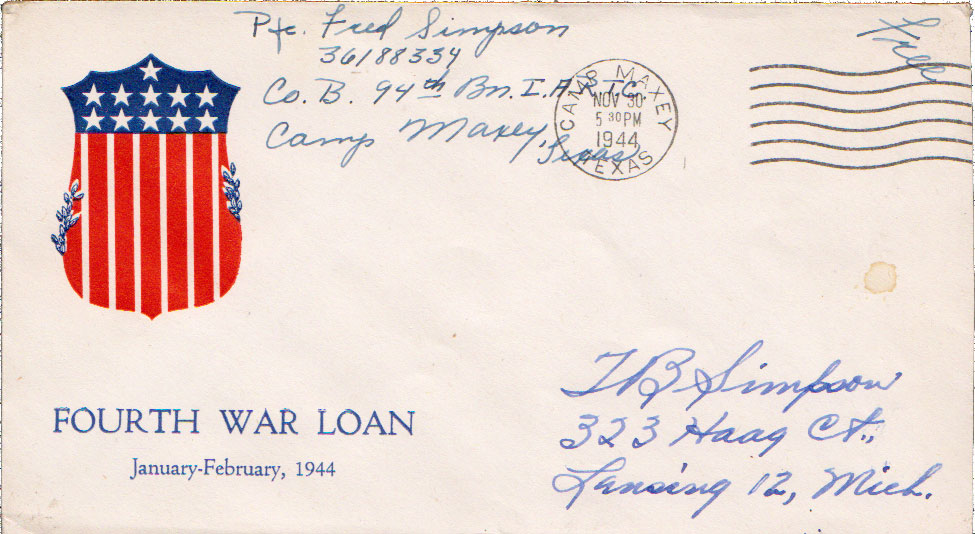 Pfc. Fred Simpson
36188334
Co. B. 94th Bn. I.A.R.T.C.
Camp Maxey,
Texas
Free
CAMP MAXEY
NOV 30
5 30 PM
1944
TEXAS
FOURTH WAR LOAN
January-February, 1944
TB Simpson
323 Haag Ct.,
Lansing 12, Mich.